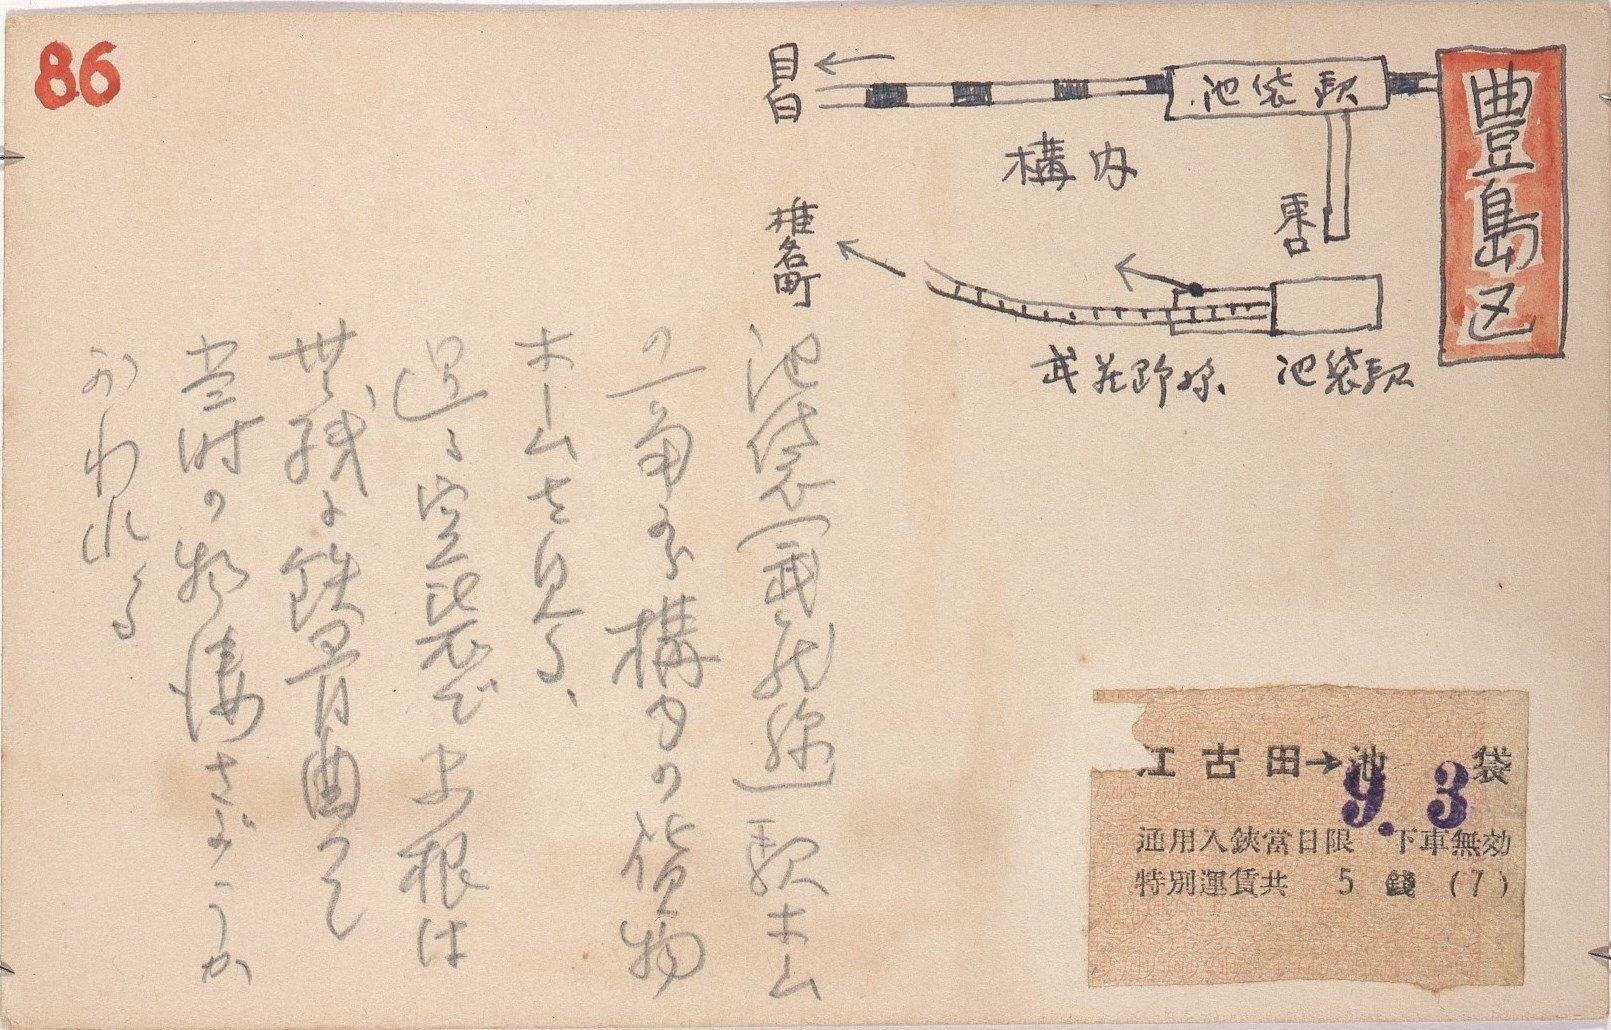 86
豊島区
池袋駅
目白
構内
東口
椎名町
武蔵野線
池袋駅
池袋(武蔵野線)駅ホーム
の一角から構内の貨物
ホームを見る、
空襲で屋根は
鉄骨曲って
当時の物凄さがうか
がわれる
江古田→池袋
9.3
通用入鋏當日限 下車無効
特別運賃共 5錢 (7)